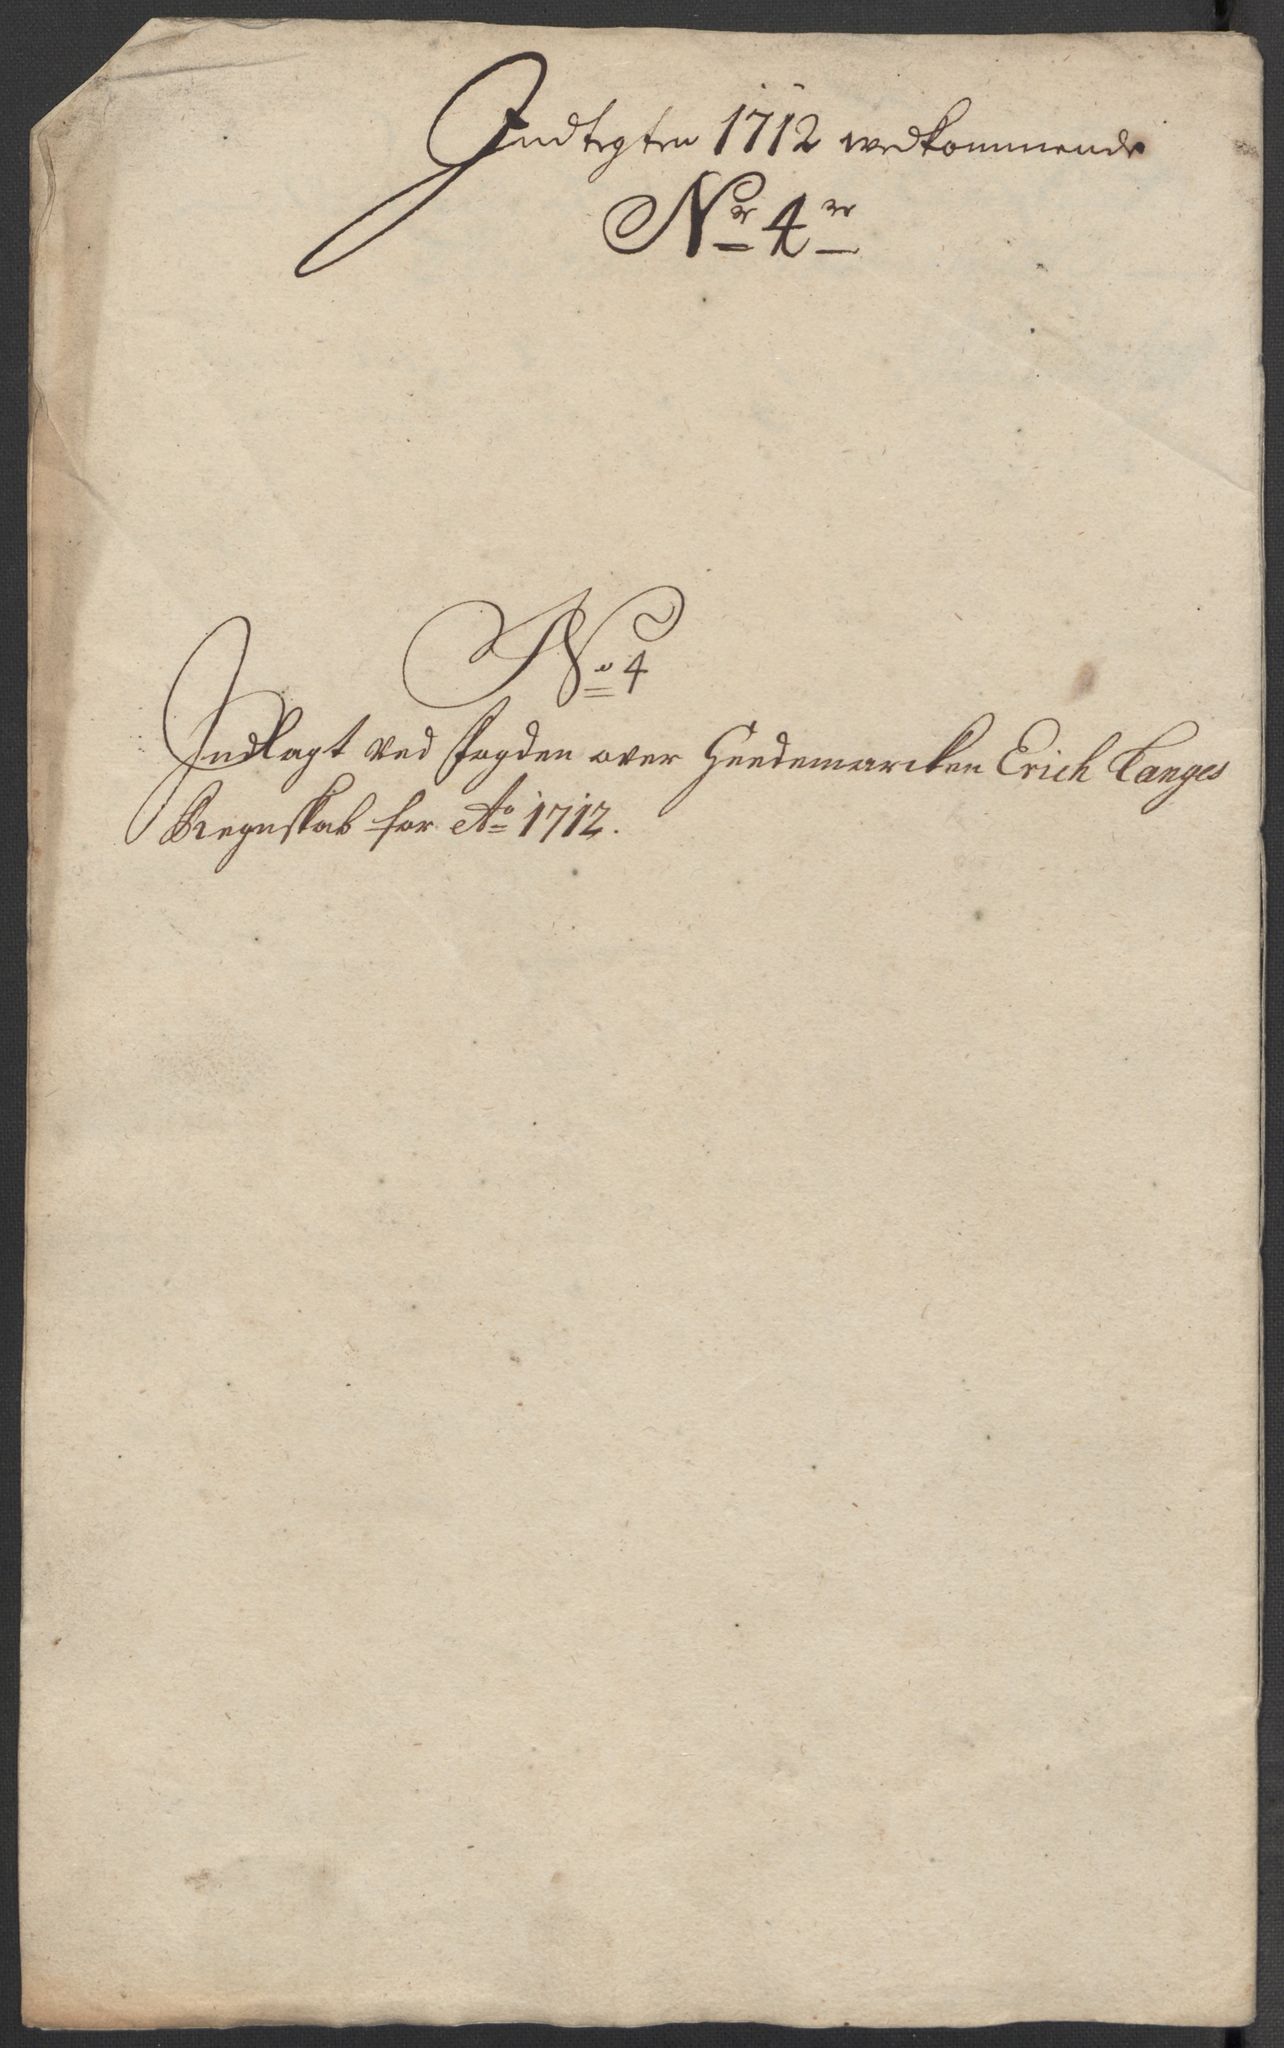 Indtegten 1712 wedkommende
Nr 4er
No 4
Indlagt ved fogden over Heedemarcken Erich Langes
Regnskab for Ao 1712.